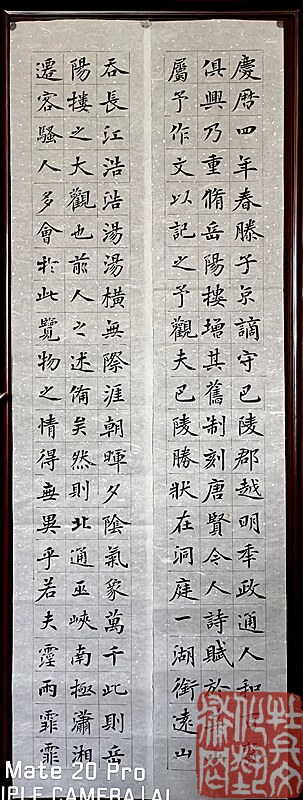 慶曆四年春滕子京謫守巴陵郡越明年政通人和
俱興乃重脩岳陽樓增其舊制刻唐賢今人詩賦於
屬予作文以記之予觀夫巴陵勝狀在洞庭一湖銜遠山
吞長江浩浩湯湯橫無際涯朝暉夕陰氣象萬千此則岳
陽樓之大觀也前人之述備矣然則北通巫峽南極瀟湘
遷客騷人多會於此覽物之情得無異乎若夫霪雨霏霏
Mate 20 Pro
IPLE CAMERA | AI